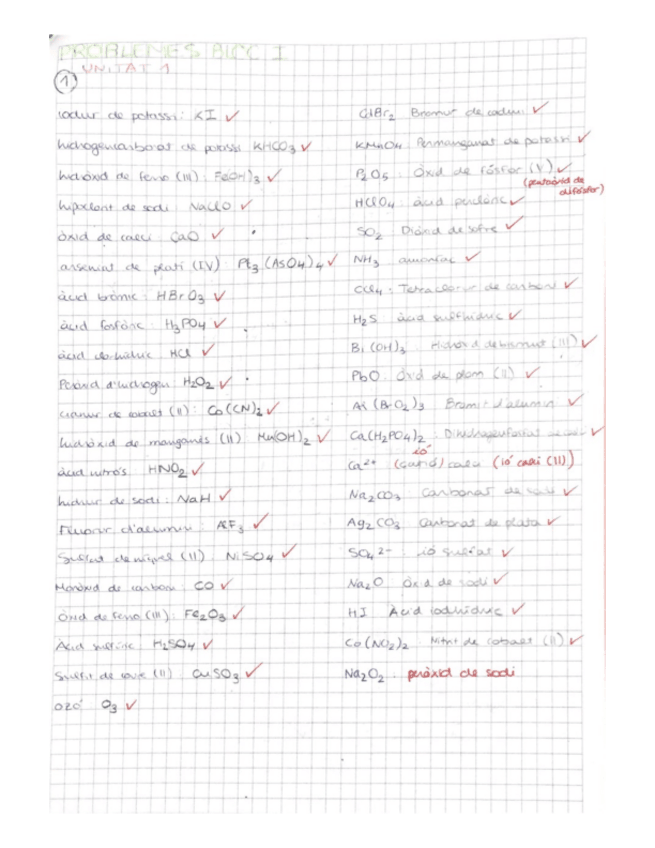 PROBLEMES BLOC I
UNITAT 1
1
iodur de potassi: KI
hidrogencarbonat de potassi KHCO3
hidròxid de ferro (III): Fe(OH)3
hipoclorit de sodi: NaClO
òxid de calci: CaO
arseniat de platí (IV): Pt3(AsO4)4
àcid bròmic: HBrO3
àcid fosfòric: H3PO4
àcid clorhídric HCl
Peròxid d'hidrogen: H2O2
cianur de cobalt (II): Co(CN)2
hidròxid de manganès (II) Mn(OH)2
àcid nitrós HNO2
hidrur de sodi: NaH
Fluorur d'alumini: AlF3
Sulfat de níquel (II): NiSO4
Monòxid de carboni: CO
Òxid de ferro (III): Fe2O3
Àcid sulfúric H2SO4
Sulfit de coure (II) CuSO3
ozó O3
CdBr2 Bromur de cadmi
KMnO4 Permanganat de potassi
P2O5: Òxid de fòsfor (V)
(pentaòxid de difòsfor)
HClO4: àcid perclòric
SO2 Diòxid de sofre
NH3 amoníac
CCl4: Tetraclorur de carboni
H2S àcid sulfhídric
Bi(OH)3 Hidròxid de bismut (III)
PbO Òxid de plom (II)
Al(BrO2)3 Bromit d'alumini
Ca(H2PO4)2: Dihidrogenfosfat de calci
ió
Ca2+ (catió) calci (ió calci (II))
Na2CO3 Carbonat de sodi
Ag2CO3 Carbonat de plata
SO4 2-: ió sulfat
Na2O Òxid de sodi
HI Àcid iodhídric
Co(NO2)2: Nitrit de cobalt (II)
Na2O2: peròxid de sodi